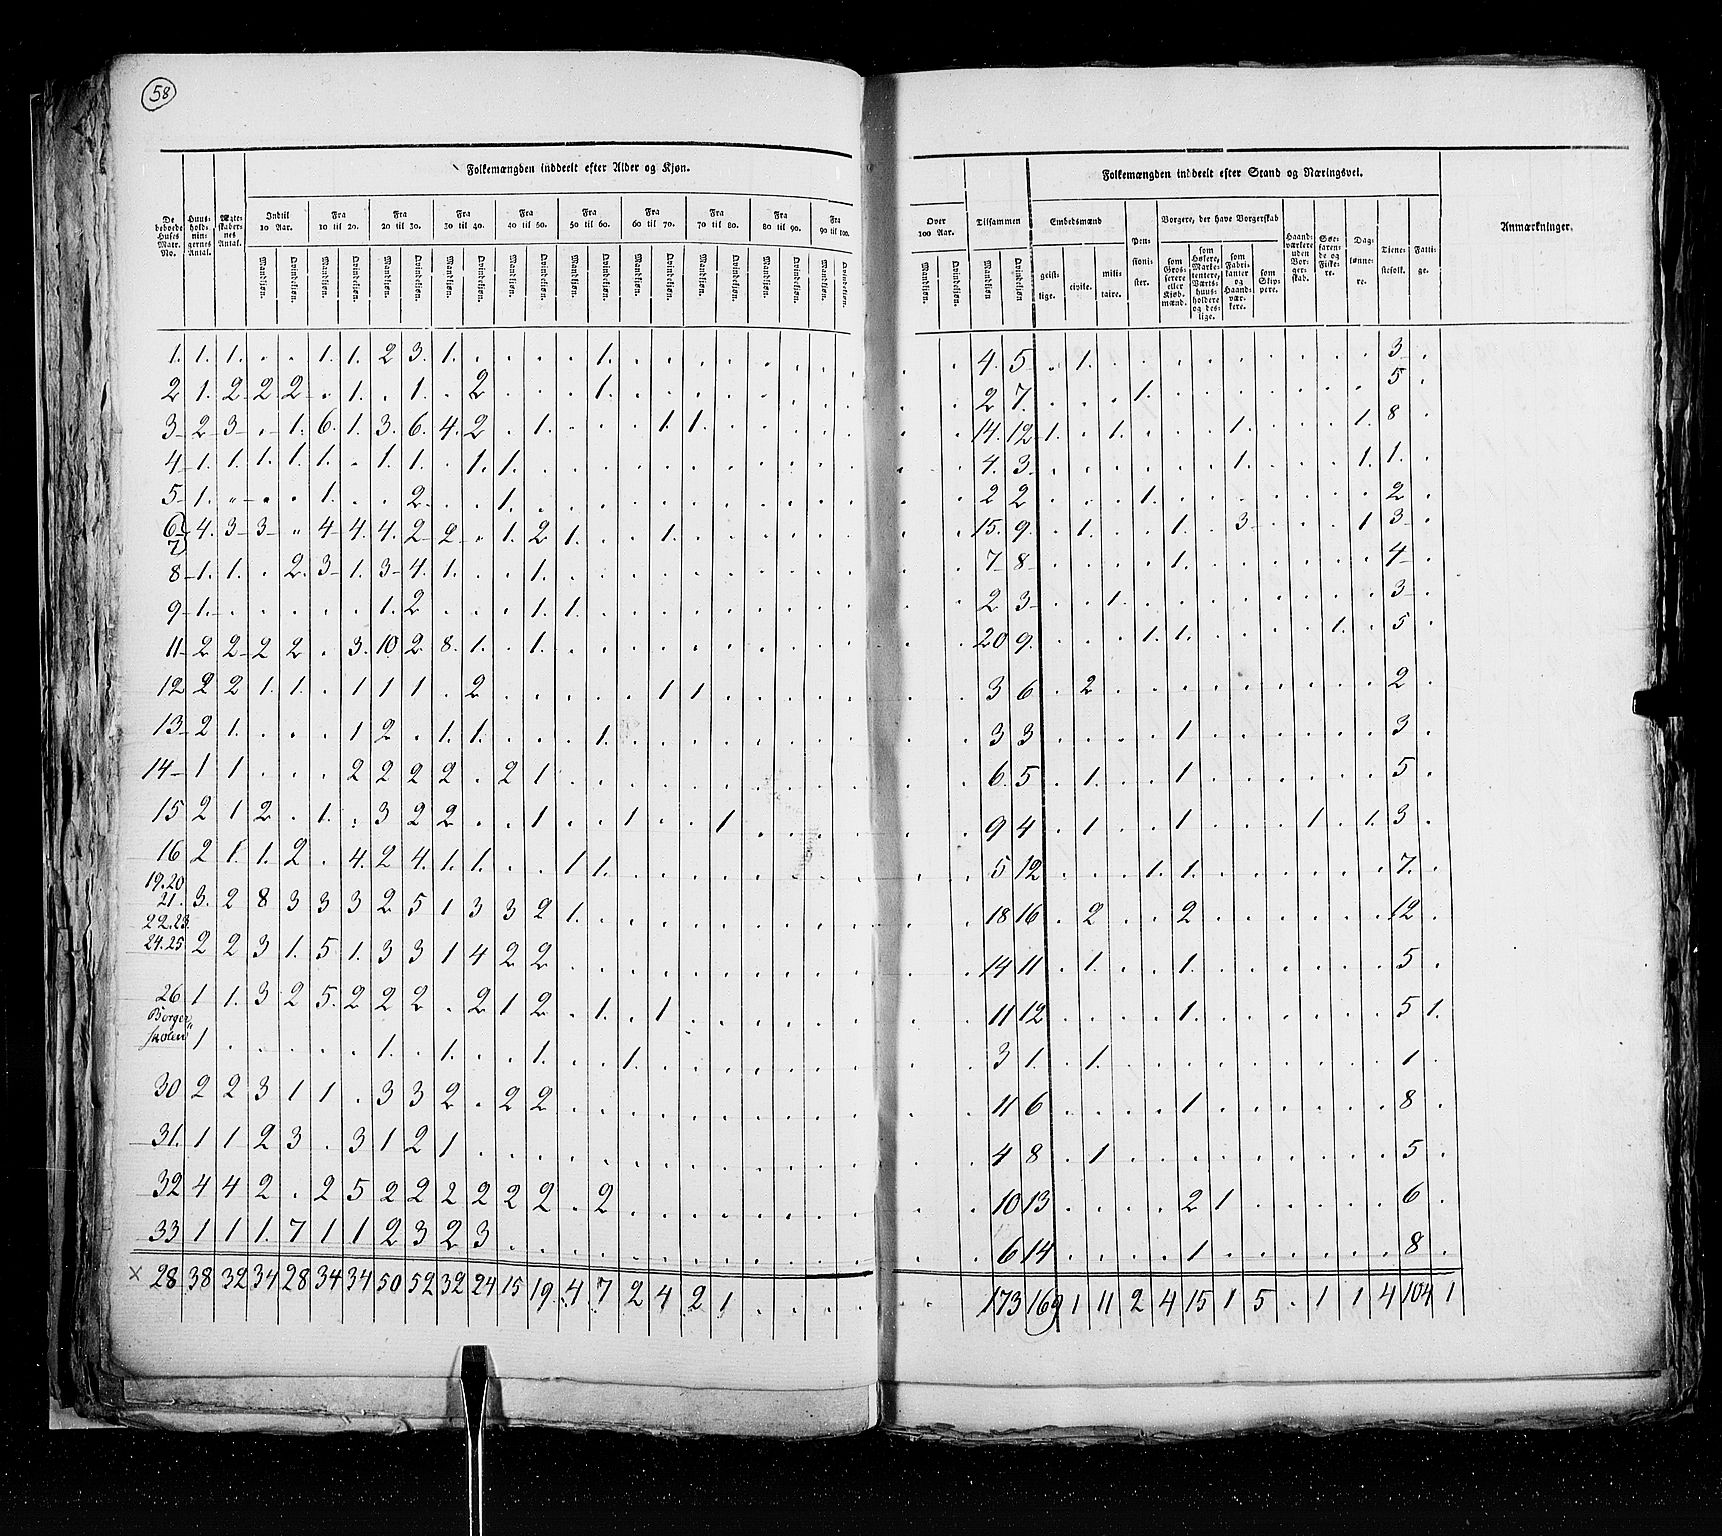 58
Folkemængden inddeelt efter Alder og Kjøn.
Folkemængden inddeelt efter Stand og Næringsvei.
De beboede Huses Matr. No.
Huus-hold-nin-gernes Antal.
Ægte-skaber-nes Antal.
Indtil 10 Aar.
Fra 10 til 20.
Fra 20 til 30.
Fra 30 til 40.
Fra 40 til 50.
Fra 50 til 60.
Fra 60 til 70.
Fra 70 til 80.
Fra 80 til 90.
Fra 90 til 100.
Over 100 Aar.
Tilsammen
Embedsmænd
Pen-sioni-ster.
Borgere, der have Borgerskab
Haand-værkere uden Bor-ger-skab.
Søe-farende og Fiske-re.
Dag-lønne-re.
Tiene-stefolk.
Fatti-ge.
Anmærkninger.
Mandkjøn. Qvindekjøn. Mandkjøn. Qvindekjøn. Mandkjøn. Qvindekjøn. Mandkjøn. Qvindekjøn. Mandkjøn. Qvindekjøn. Mandkjøn. Qvindekjøn. Mandkjøn. Qvindekjøn. Mandkjøn. Qvindekjøn. Mandkjøn. Qvindekjøn. Mandkjøn. Qvindekjøn. Mandkjøn. Qvindekjøn. Mandkjøn Qvindekjøn
geist-lige. civile. mili-taire.
som Gros-serere eller Kjøb-mænd.
som Høkere, Marke-tentere, Værts-huus-holdere og des-lige.
som Fabri-kanter og Haand-vær-kere.
som Skip-pere.
1. 1. 1. . . 1. 1. 2 3. 1. . . . . 1. . . . . . . . . . . 4. 5 . 1. . . . . . . . . . 3 .
2 1. 2 2 2 . 1. . 1. . 2 . . . 1. . . . . . . . . . . 2 7. . . . 1. . . . . . . . 5 .
3 2 3 . 1. 6. 1. 3. 6. 4. 2 . 1. . . . 1. 1. . . . . . . . 14. 12 1. . 1. . . . 1. . . . 1. 8 .
4 1. 1. 1. 1. 1. . 1. 1. . 1. 1. . . . . . . . . . . . . . 4. 3. . . . . . . 1. . . . 1. 1. .
5 1. " . . 1. . . 2 . . 1. . . . . . . . . . . . . . 2 2 . . . 1. . . . . . . . 2 .
6 7 4. 3 3 " 4 4. 4. 2 2 . 1. 2 1. . . 1. . . . . . . . . 15. 9. . 1. . . 1. . 3 . . . 1 3 .
8 1. 1. . 2. 3 1. 3 4. 1. . . 1. . . . . . . . . . . . . 7 8 . . . . 1. . . . . . . 4 .
9 1. . . . . . 1. 2 . . . 1. 1. . . . . . . . . . . . 2 3 . . 1. . . . . . . . . 3 .
11 2 2 2 2 . 3. 10 2 8. 1. . 1. . . . . . . . . . . . . 20 9. . . . 1. 1. . . . . 1. . 5 .
12 2 2 1. 1. . 1 1 1 . 2 . . . . . 1 1 . . . . . . . 3 6 . 2 . . . . . . . . . 2 .
13 2 1. . . . 1 2 . 1. 1. . . . 1. . . . . . . . . . . 3 3 . . . . 1 . . . . . . 3 .
14 1 1 . . . 2 2 2 2 . 2 1 . . . . . . . . . . . . 6. 5 . 1. . . 1 . . . . . . 5 .
15 2 1 2 . 1. . 3 2 2 . . 1 . . 1 . . 1 . . . . . . 9 4 . 1 . . 1 . . . 1 . 1. 3 .
16 2 1. 1. 2 . 4. 2 4. 1. 1. . . 1 1. . . . . . . . . . . 5 12 . . . 1. 1. . . . . . . 7. .
19.20 21. 3. 2 8 3 3 3 2 5 1 3 3 2 1. . . . . . . . . . . . 18 16 . 2 . . 2 . . . . . . 12 .
22.23. 24.25 2 2 3 1. 5 1. 3 3 1 4 2 2 . . . . . . . . . . . . 14 11 . 1. . . 1. . . . . . . 5 .
26 1 1. 3 2 5. 2 2 2 . 2 1 2 . 1. . 1 . . . . . . . . 11 12 . . . . 1. . . . . . . 5 1.
Borger skolen 1 . . . . . . 1. . 1. . . 1. . . 1. . . . . . . . . 3 1. . 1. . . . . . . . . . 1 .
30 2 2 3 1 1 . 3 3 2 . 2 2 . . . . . . . . . . . . 11 6 . . . . 1 . . . . . . 8 .
31. 1 1 2 3 . 3 1 2 1 . . . . . . . . . . . . . . . 4 8 . 1 . . . . . . . . . 5 .
32 4 4 2 . 2 5 2 2 2 2 2 2 . 2 . . . . . . . . . . 10 13 . . . . 2 1 . . . . . 6 .
33 1 1 1. 7 1 1 2 3 2 3 . . . . . . . . . . . . . . 6 14 . . . . 1 . . . . . . 8 .
x 28 38 32 34 28 34 34 50 52 32 24 15 19. 4 7 2 4 2 1 . . . . . . 173 169 1 11 2 4 15 1 5 . 1 1 4 104 1